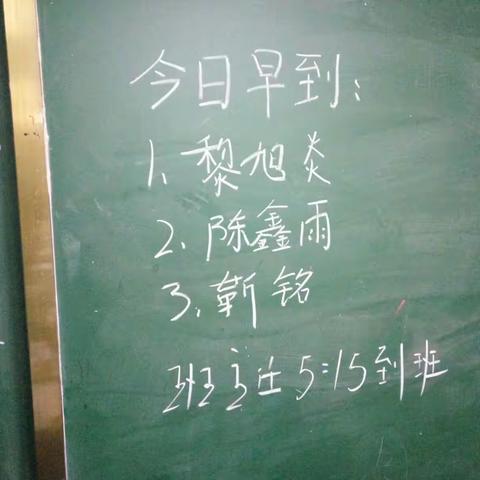 今日早到：
1、黎旭炎
2、陈鑫雨
3、靳铭
班主任5:15到班